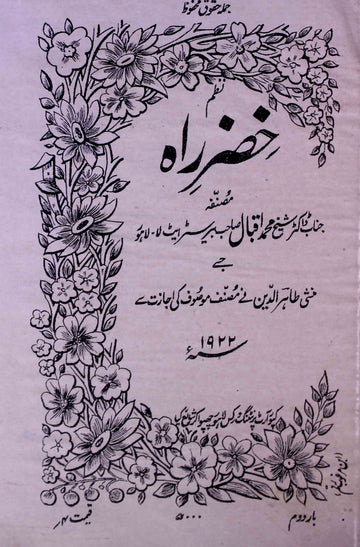 جملہ حقوق محفوظ
نظم
خضرِ راہ
مصنّفہ
جناب ڈاکٹر شیخ محمد اقبال صاحب بیرسٹر ایٹ لا۔ لاہور
جسے
منشی طاہر الدین نے مصنف موصوف کی اجازت سے
۱۹۲۲ء
آرٹ پرنٹنگ ورکس لاہور چھپوا کر شائع کیا
بار دوم
۵۰۰۰
قیمت ۴؍